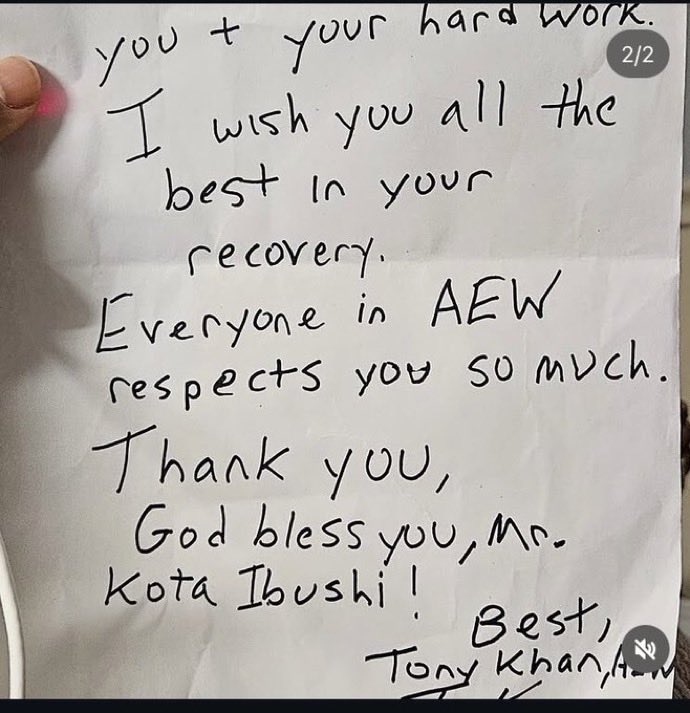 you + your hard work.
2/2
I wish you all the
best in your
recovery.
Everyone in AEW
respects you so much.
Thank you,
God bless you, Mr.
Kota Ibushi!
Best,
Tony Khan,